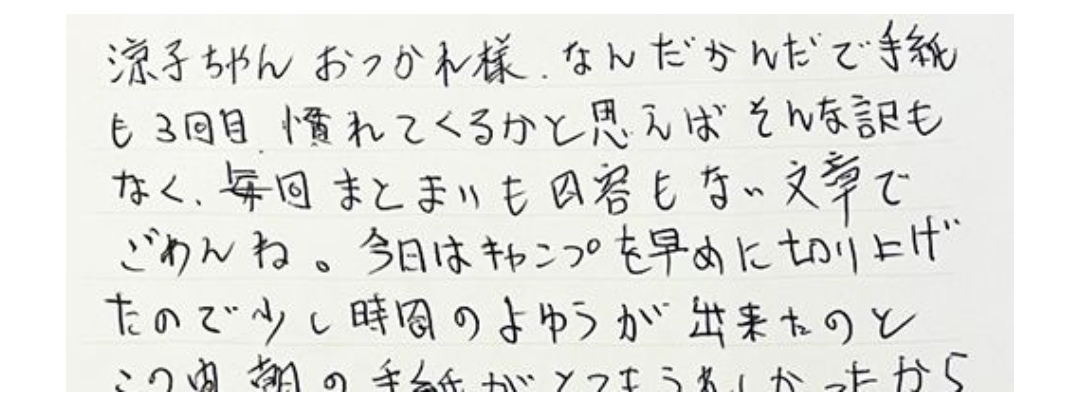 涼子ちゃん おつかれ様. なんだかんだで手紙
も3回目. 慣れてくるかと思えば そんな訳も
なく. 毎回 まとまりも 内容も ない 文章で
ごめんね。今日はキャンプを早めに切り上げ
たので少し時間のよゆうが出来たのと
この間 朝の手紙がとてもうれしかったから